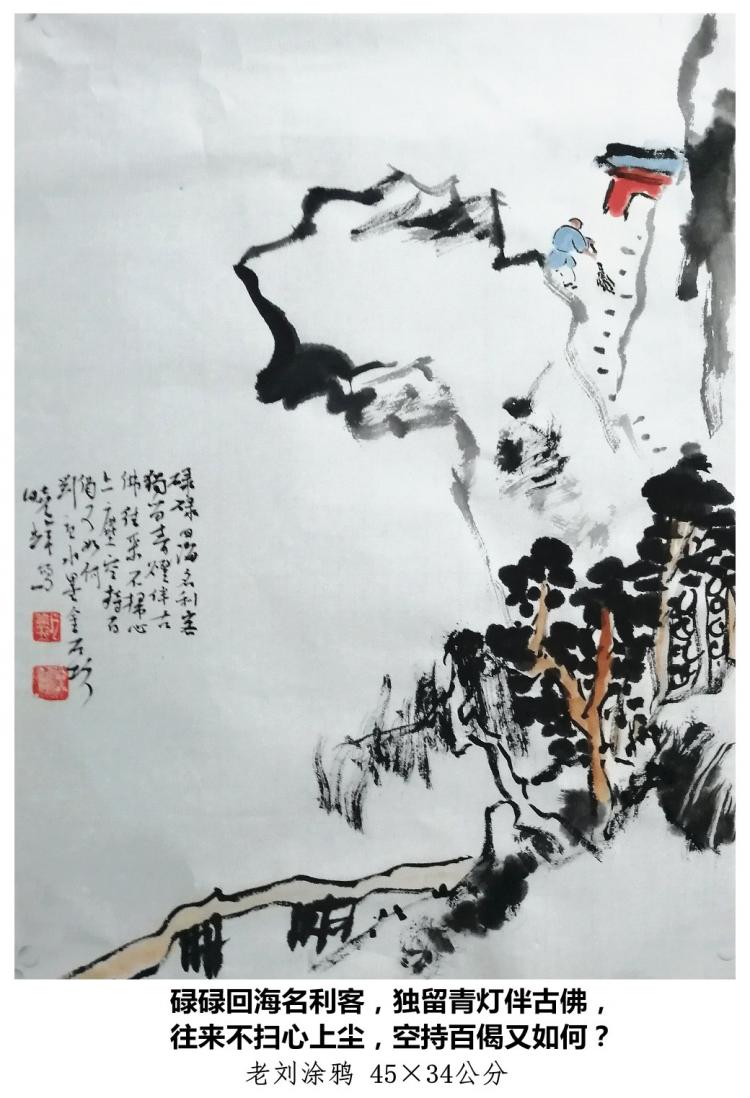 碌碌回海名利客
獨留青燈伴古
佛往来不掃心
上塵空持百
偈又如何
水墨金石坊
曉輝寫
碌碌回海名利客，独留青灯伴古佛，
往来不扫心上尘，空持百偈又如何？
老刘涂鸦 45×34公分